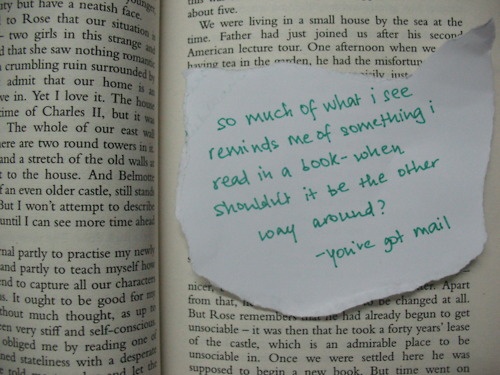 but have a neatish face.
to Rose that our situation
– two girls in this strange and
that she saw nothing
crumbling ruin surrounded
admit that our home is
in. Yet I love it. The
of Charles II, but it
The whole of our east
are two round towers in
and a stretch of the old walls
to the house. And
an even older castle, still
But I won't attempt to
until I can see more time
partly to practise my
and partly to teach myself how
to capture all our
It ought to be good for
without much thought, as up
very stiff and self-conscious
obliged me by reading one of
stateliness with a
and let the
about five.
We were living in a small house by the sea at the
time. Father had just joined us after his second
American lecture tour. One afternoon when we
having tea in the garden, he had the
so much of what i see
reminds me of something i
read in a book - when
shouldn't it be the other
way around?
- you've got mail
nicer, Apart
from that, to be changed at all.
But Rose remembers that he had already begun to get
unsociable – it was then that he took a forty years' lease
of the castle, which is an admirable place to be
unsociable in. Once we were settled here he was
supposed to begin a new book. But time went on